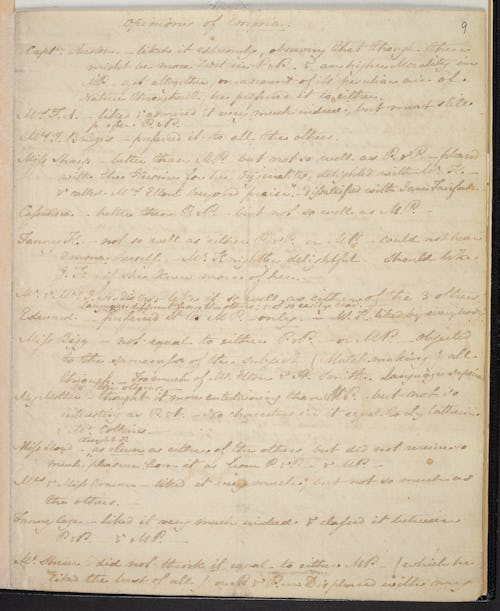 9
Opinions of Emma.
Captn. Austen. - liked it extremely, observing that though there
might be more Wit in P & P - & an higher Morality in
M P - yet altogether, on account of it's peculiar air of
Nature throughout, he preferred it to either.
Mrs F. A. - liked & admired it very much indeed, but must still
prefer P. & P.
Mrs J. Bridges - preferred it to all the others.
Miss Sharp - better than M P. - but not so well as P. & P. - pleased
with the Heroine for her Originality, delighted with Mr K -
& called Mrs Elton beyond praise. - dissatisfied with Jane Fairfax.
Cassandra - better than P. & P. - but not so well as M. P. -
Fanny K. - not so well as either P. & P. or M P. - could not bear
Emma herself. - Mr Knightley delightful. - Should like
J. F. - if she knew more of her. -
Mr & Mrs J. A. did not like it so well as either of the 3 others.
Language different from the others; not so easily read. -
Edward - preferred it to M P. - only. - Mr K. liked by every body.
Miss Bigg - not equal to either P & P. - or M P. - objected
to the sameness of the subject (Match-making) all
through. - Too much of Mr Elton & H. Smith. Language superior
to the others. -
My Mother - thought it more entertaining than M P. - but not so
interesting as P. & P. - No characters in it equal to Ly Catherine
& Mr Collins. -
Miss Lloyd - thought it as clever as either of the others, but did not receive so
much pleasure from it as from P. & P - & M P. -
Mrs & Miss Craven - liked it very much, but not so much as
the others. -
Fanny Cage - liked it very much indeed & classed it between
P & P. & M P. -
Mr Sherer - did not think it equal to either M P - (which he
liked the best of all) or P & P. - Displeased with my